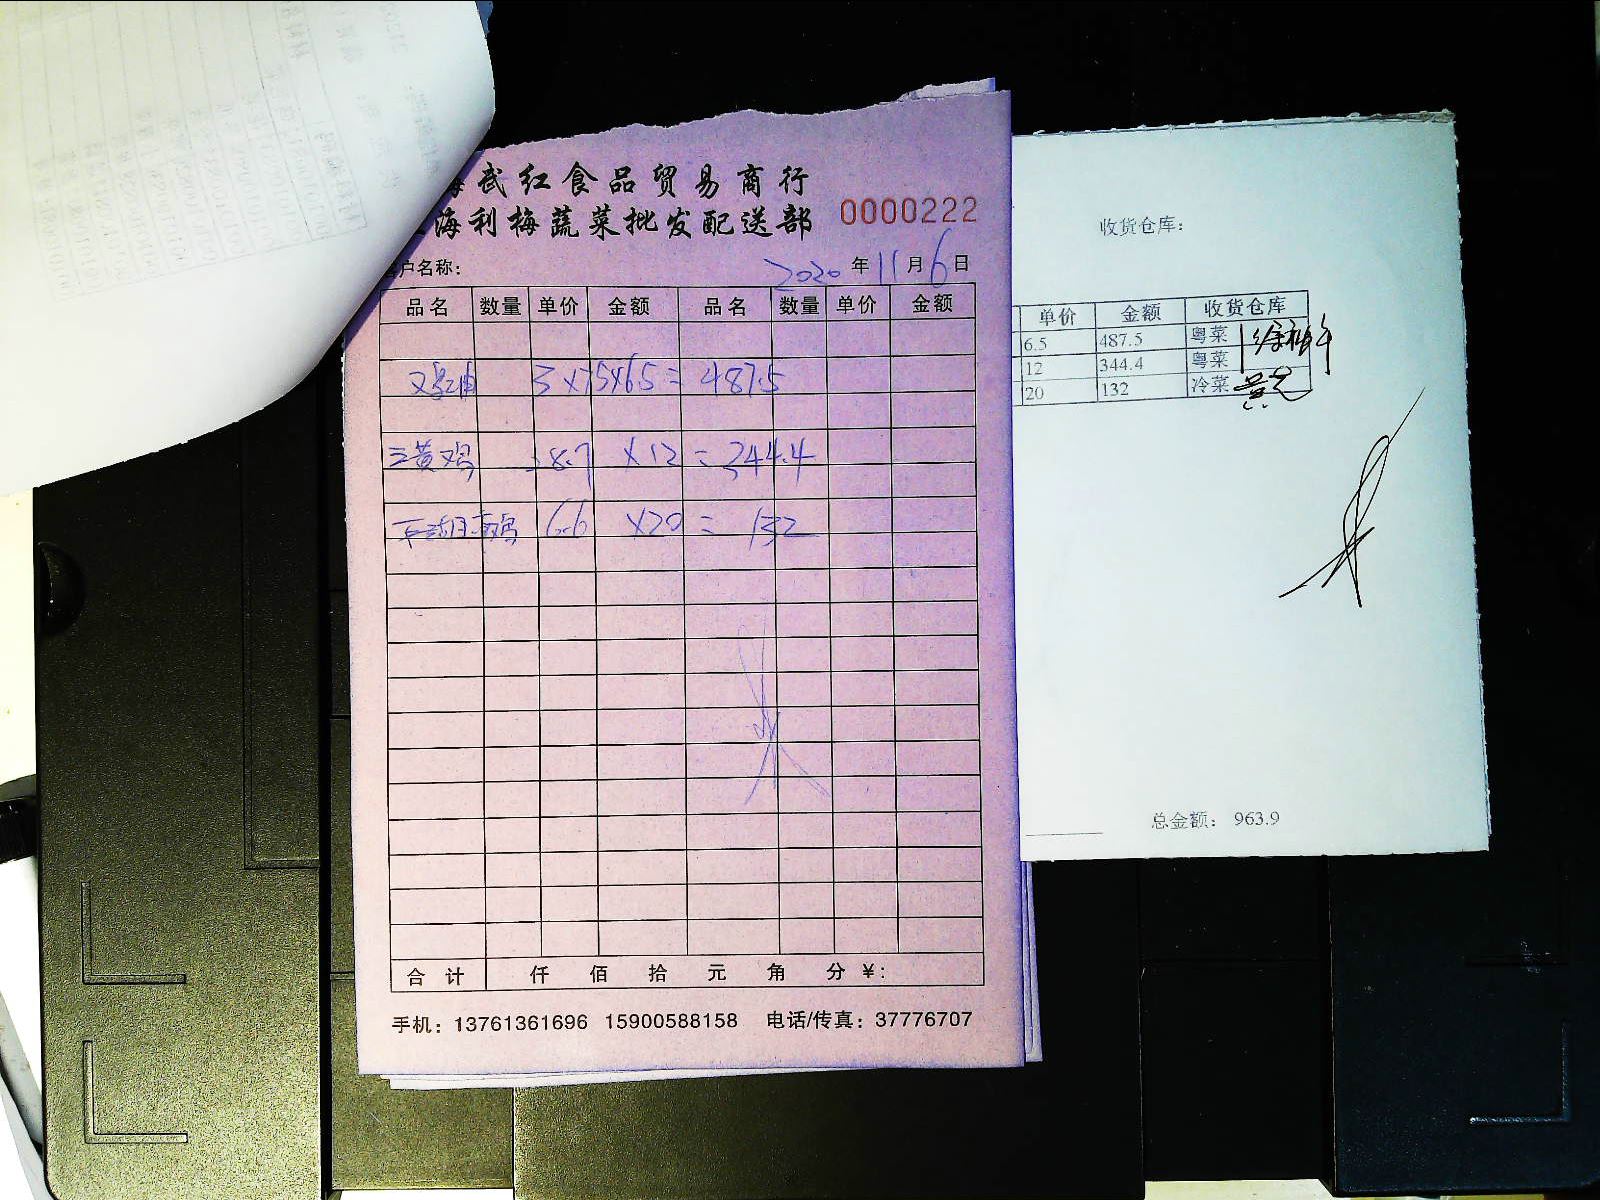 武红食品贸易商行
海利梅蔬菜批发配送部
0000222
户名称:
2020年11月6日
品名 数量 单价 金额 品名 数量 单价 金额
鸡油 3×75×6.5=487.5
三黄鸡 28.7×12=344.4
鸡 6.6×20=132
合计 仟 佰 拾 元 角 分 ¥:
手机: 13761361696 15900588158 电话/传真: 37776707
收货仓库:
单价 金额 收货仓库
6.5 487.5 粤菜
12 344.4 粤菜
20 132 冷菜
总金额: 963.9